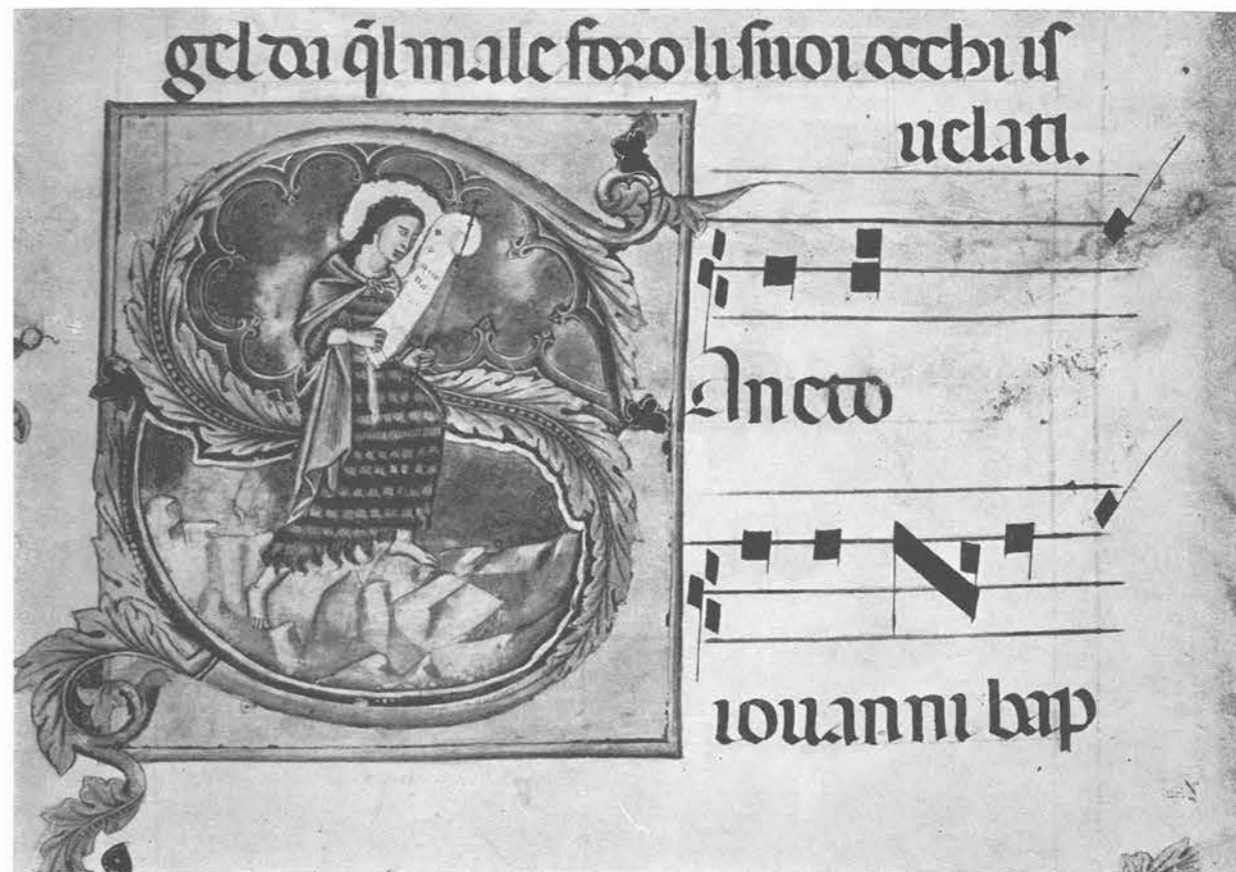 gel da q̃l male foro li suoi occhi is
uelati.
Ancto
iouanni bap